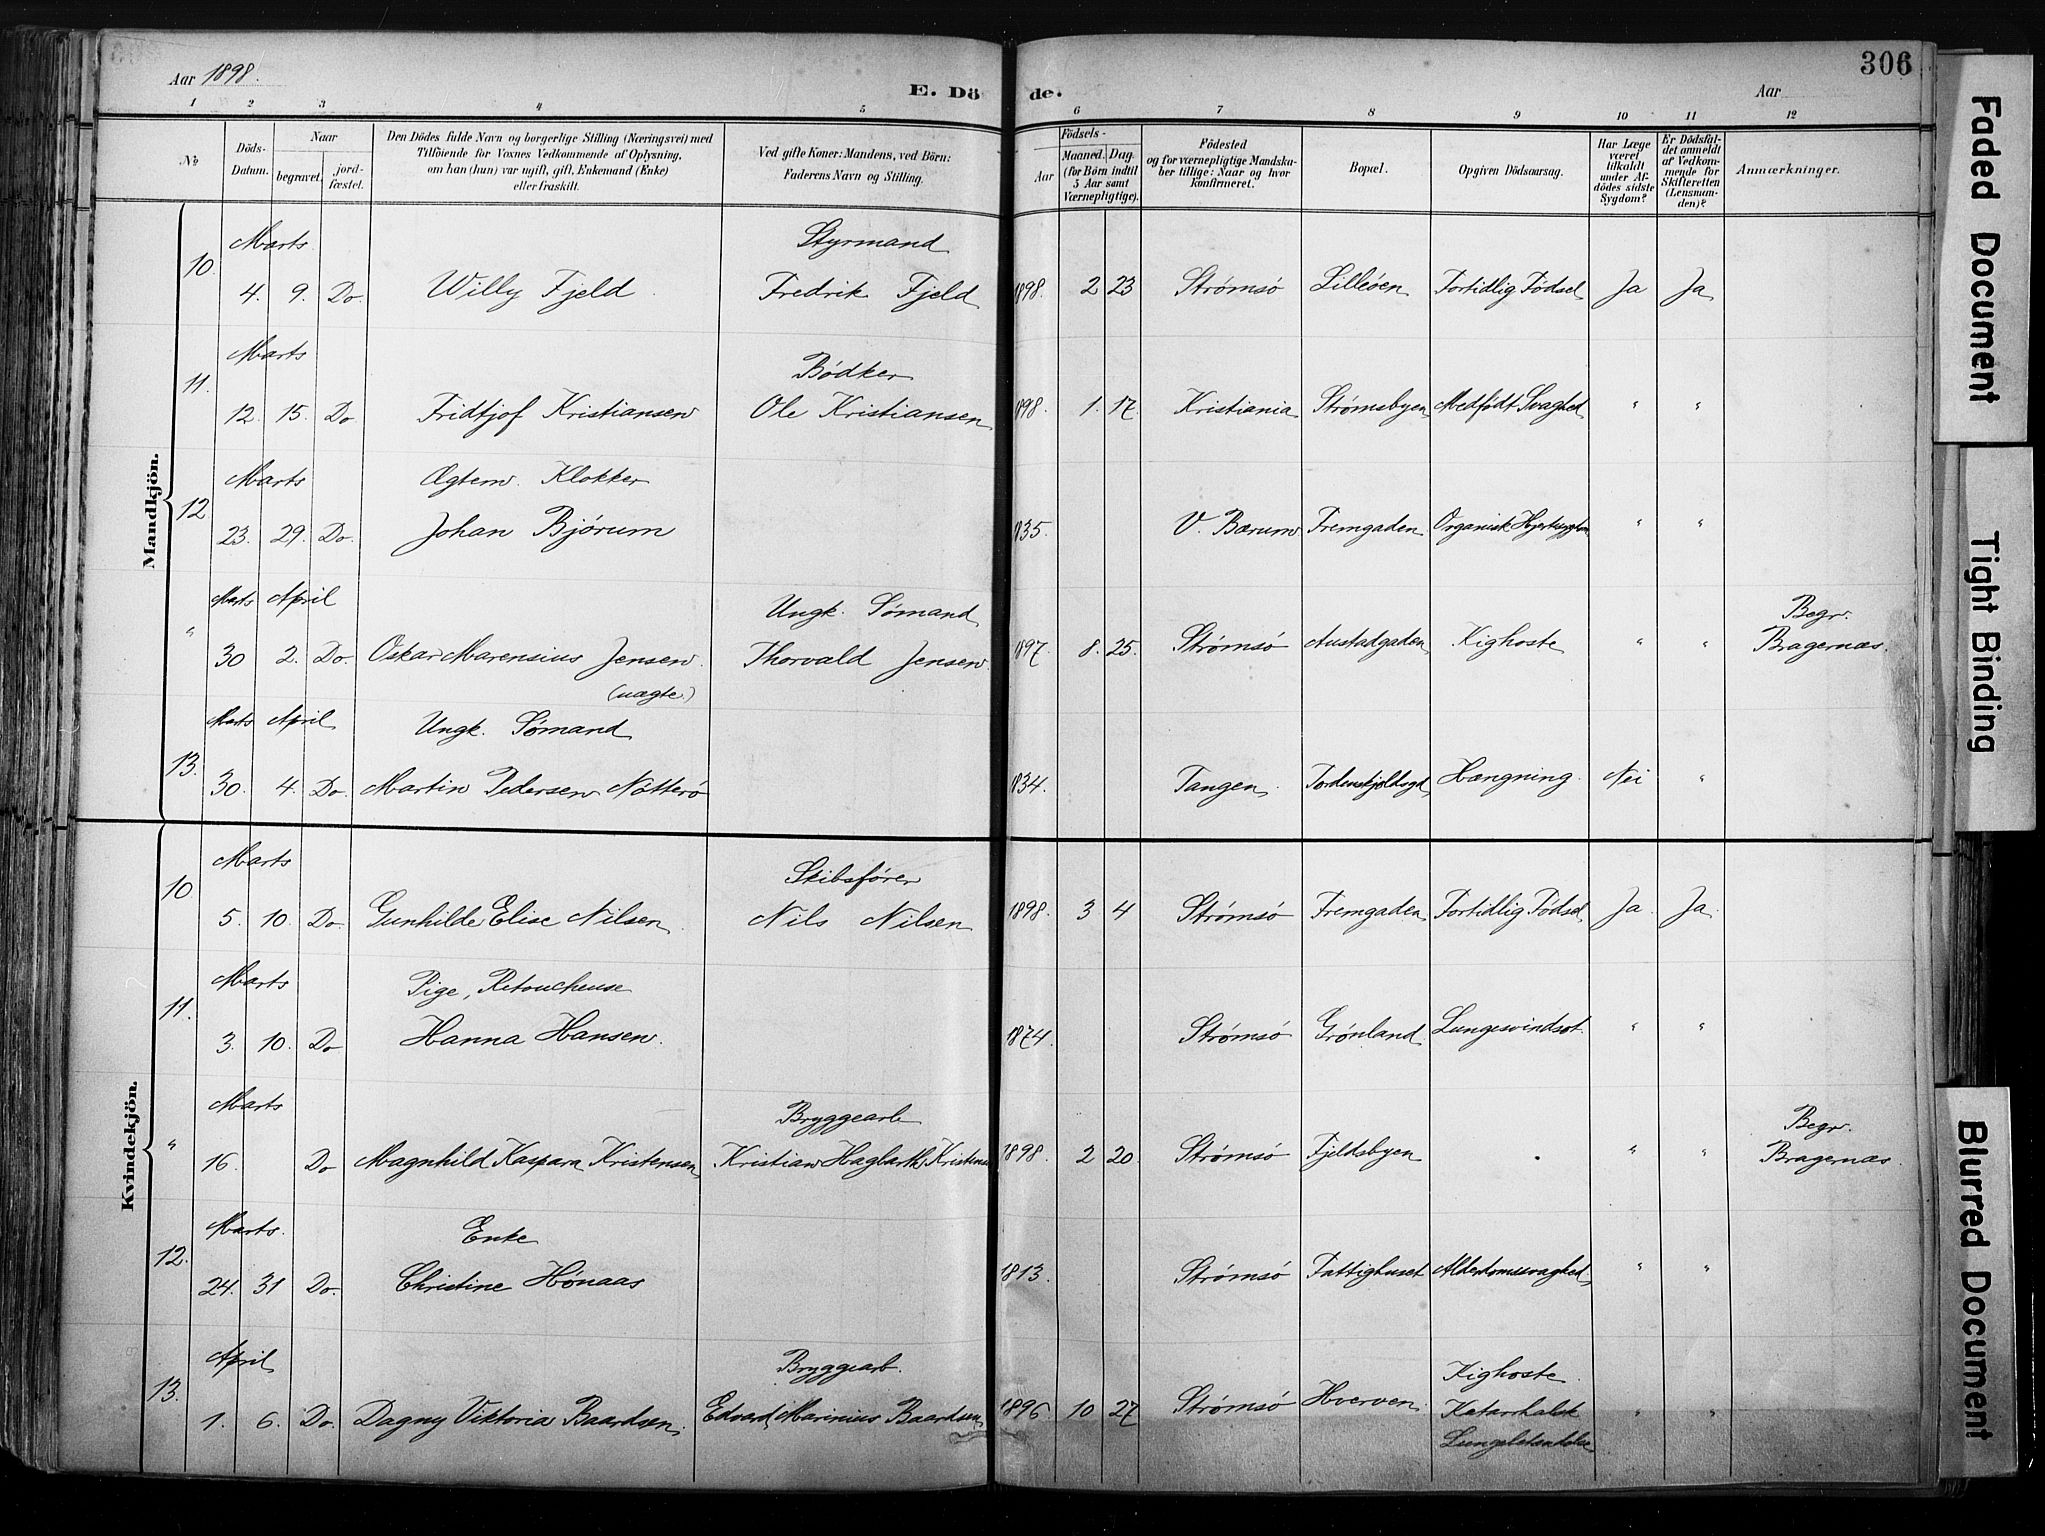 Aar 1898.
E. Dö de.
Aar
306
1 2 3 4 5 6 7 8 9 10 11 12
No
Döds-
Datum.
Naar
begravet.
jord-
fæstet.
Den Dödes fulde Navn og borgerlige Stilling (Næringsvei) med
Tilföiende for Voxnes Vedkommende af Oplysning,
om han (hun) var ugift, gift, Enkemand (Enke)
eller fraskilt.
Ved gifte Koner: Mandens, ved Börn:
Faderens Navn og Stilling.
Födsels-
Aar
Maaned. Dag.
(for Börn indtil
5 Aar samt
Værnepligtige).
Födested
og for værnepligtige Mandska-
ber tillige: Naar og hvor
konfirmeret.
Bopæl.
Opgiven Dödsaarsag.
Har Læge
været
tilkaldt
under Af-
dödes sidste
Sygdom?
Er Dödsfal-
det anmeldt
af Vedkom-
mende for
Skifteretten
(Lensman-
den)?
Anmærkninger.
Mandkjön.
Marts Styrmand
10. 4. 9. Do. Willy Fjeld. Fredrik Fjeld 1898. 2 23 Strømsø Lilleøen Fortidlig Fødsel Ja Ja
Marts Bødker
11. 12. 15. Do Fridtjof Kristiansen Ole Kristiansen 1898. 1. 17. Kristiania Strømsbyen Medfødt Svaghed " "
Marts Ægtem. Klokker
12 23. 29. Do. Johan Bjørum 1835. V. Bærum Fremgaden Organisk Hjertesygdom " "
Marts April Ungk. Sømand Begr.
" 30 2. Do. Oskar Marensius Jensen. Thorvald Jensen 1897. 8. 25. Strømsø Austadgaden Kighoste " " Bragernæs.
(uægte.)
Marts April Ungk. Sømand
13. 30. 4. Do. Martin Pedersen Nøtterø 1834. Tangen. Tordenskjoldsgd. Hængning. Nei "
Kvindekjön.
Marts Skibsfører
10 5. 10. Do. Gunhilde Elise Nilsen. Nils Nilsen 1898. 3 4 Strømsø Fremgaden Fortidlig Fødsel Ja. Ja.
Marts Pige, Retoucheuse
11. 3. 10. Do Hanna Hansen. 1874. Strømsø Grønland Lungesvindsot. " "
Marts Bryggearb Begr.
" 16. Do Magnhild Kaspara Kristensen Kristian Hagbarth Kristensen 1898. 2 20 Strømsø Fjeldsbyen . " " Bragernæs.
Marts. Enke
12. 24. 31 Do. Christine Hønaas 1813. Strømsø Fattighuset Alderdomssvaghed " "
April Bryggearb. Kighoste.
13. 1. 6. Do. Dagny Viktoria Baardsen. Edvard Marinius Baardsen. 1896 10 27 Strømsø Hverven. Katarrhalsk " "
Lungebetændelse
Faded Document
Tight Binding
Blurred Document